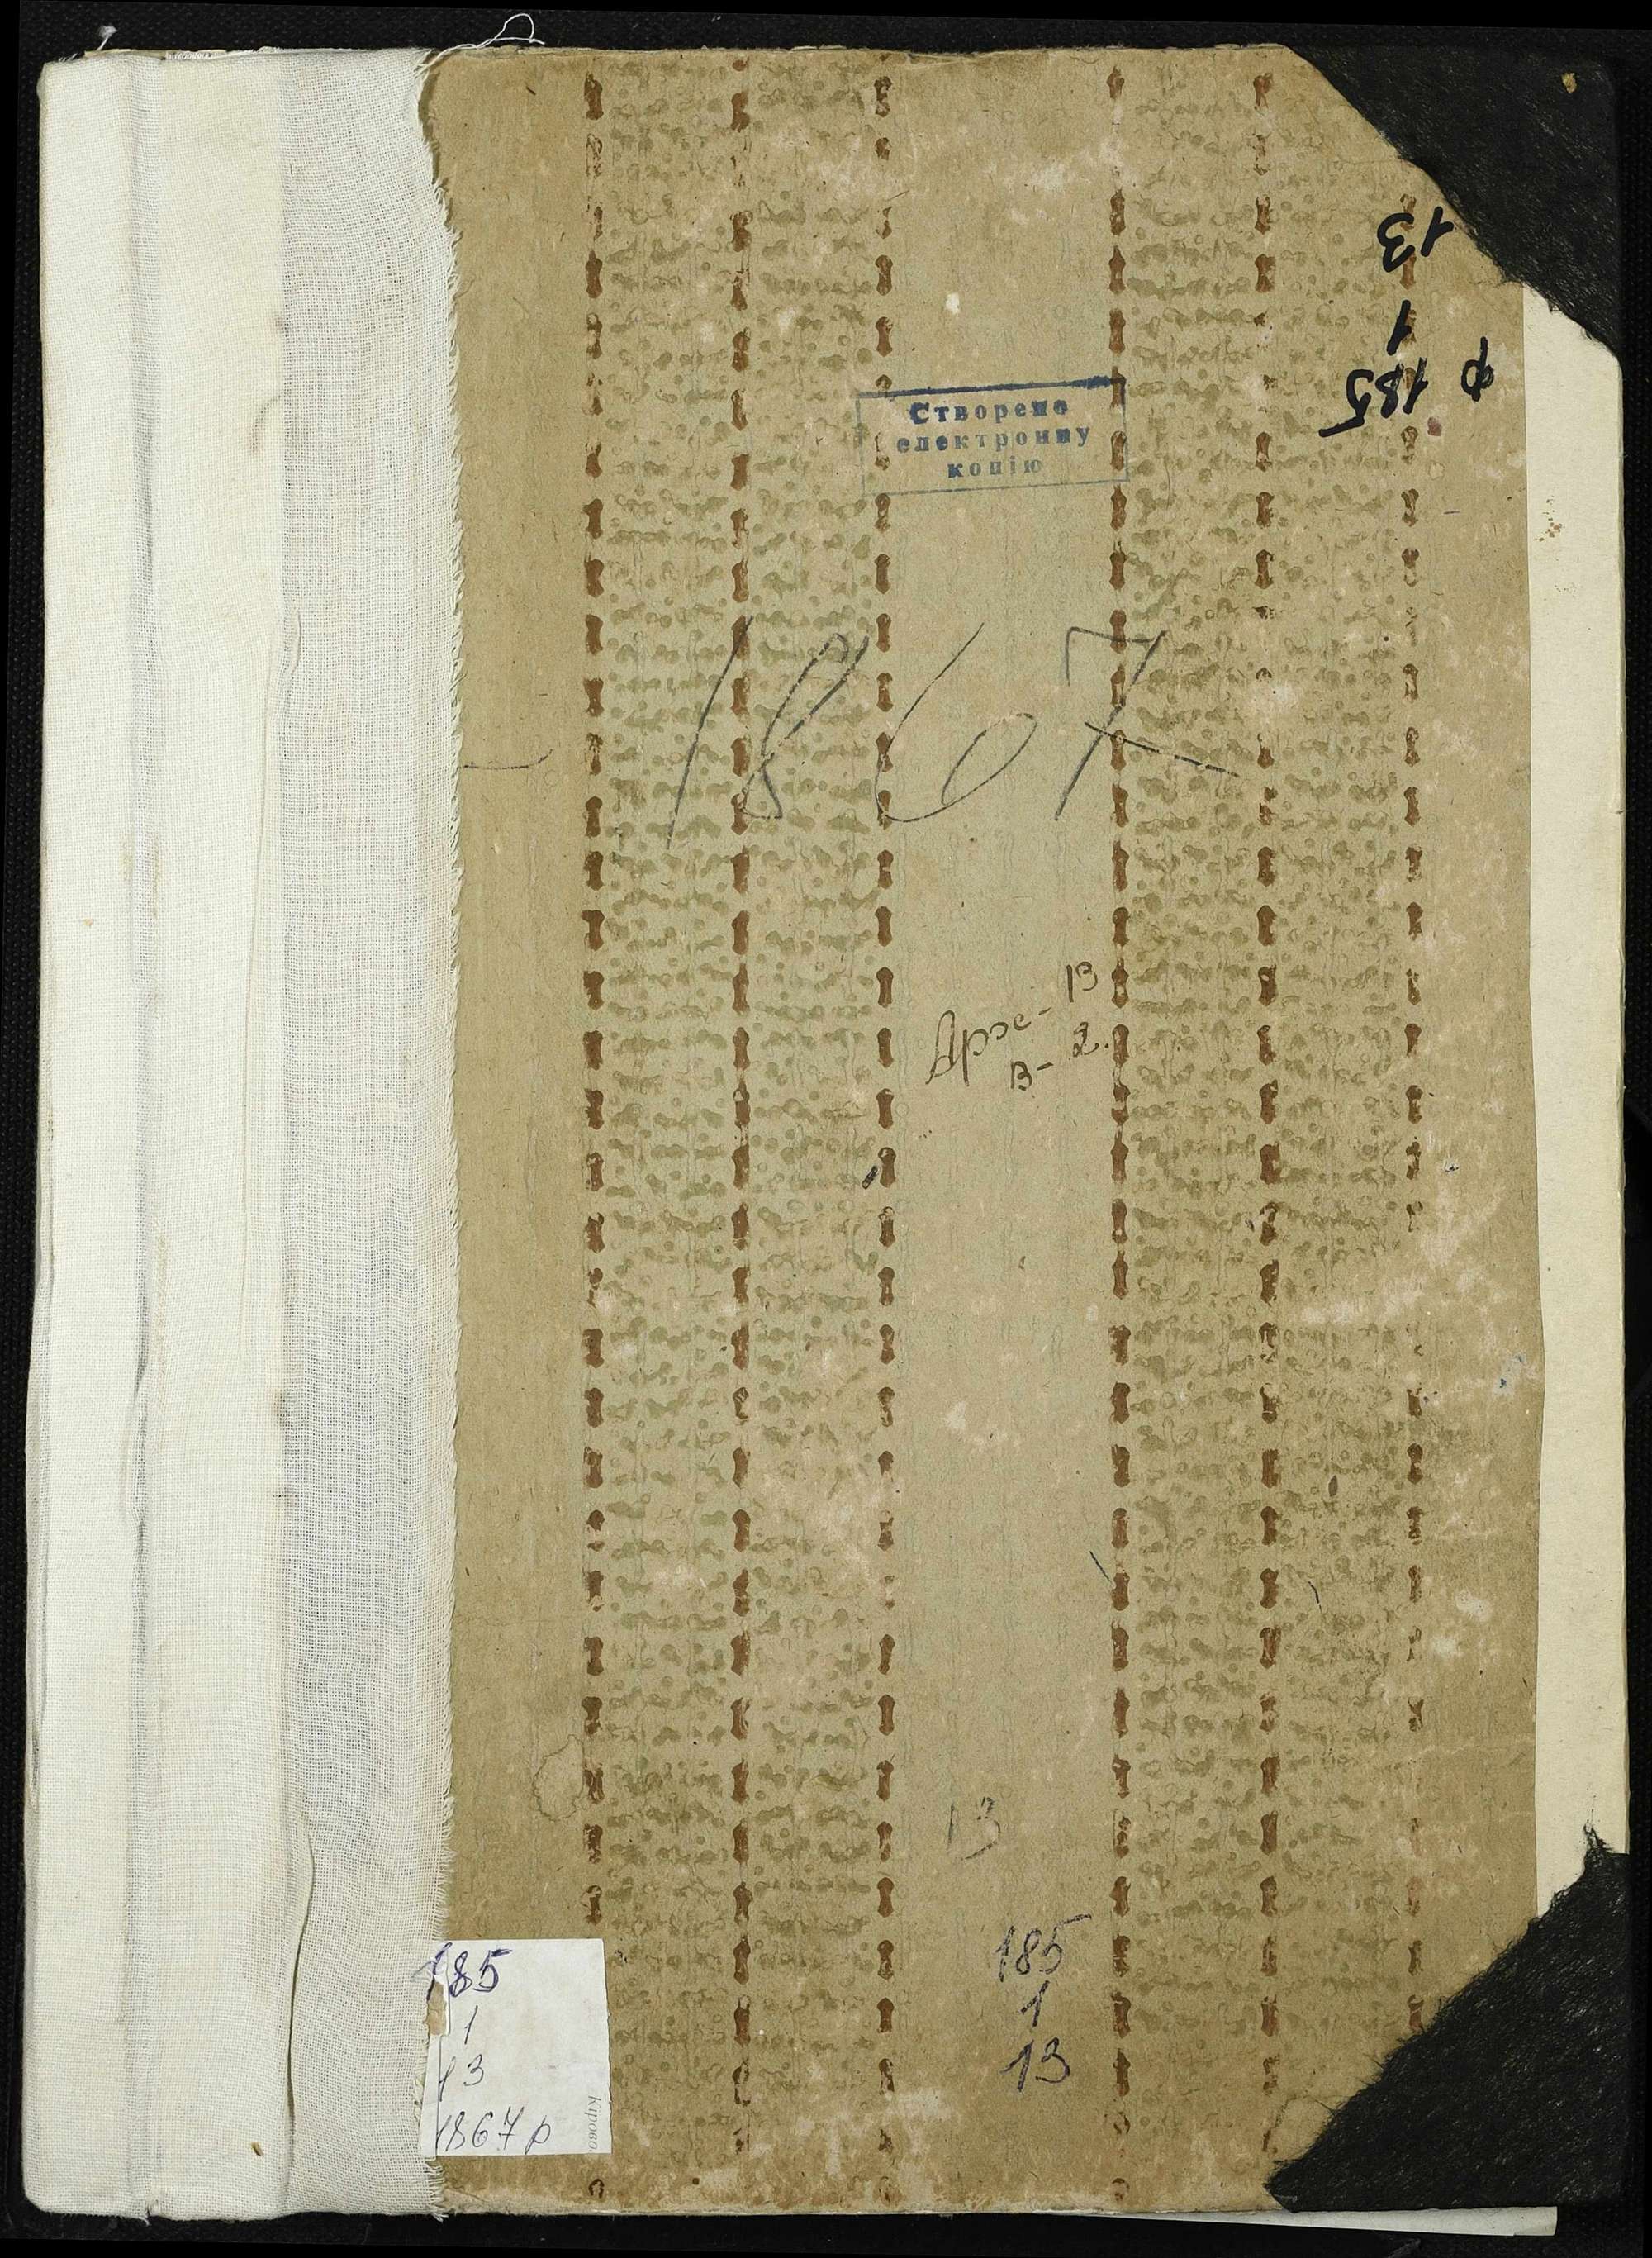 13
1
ф 185
Створено
електронну
копію
1867
13
В- 2.
13
185
1
13
185
1
13
1867 р
Кірово